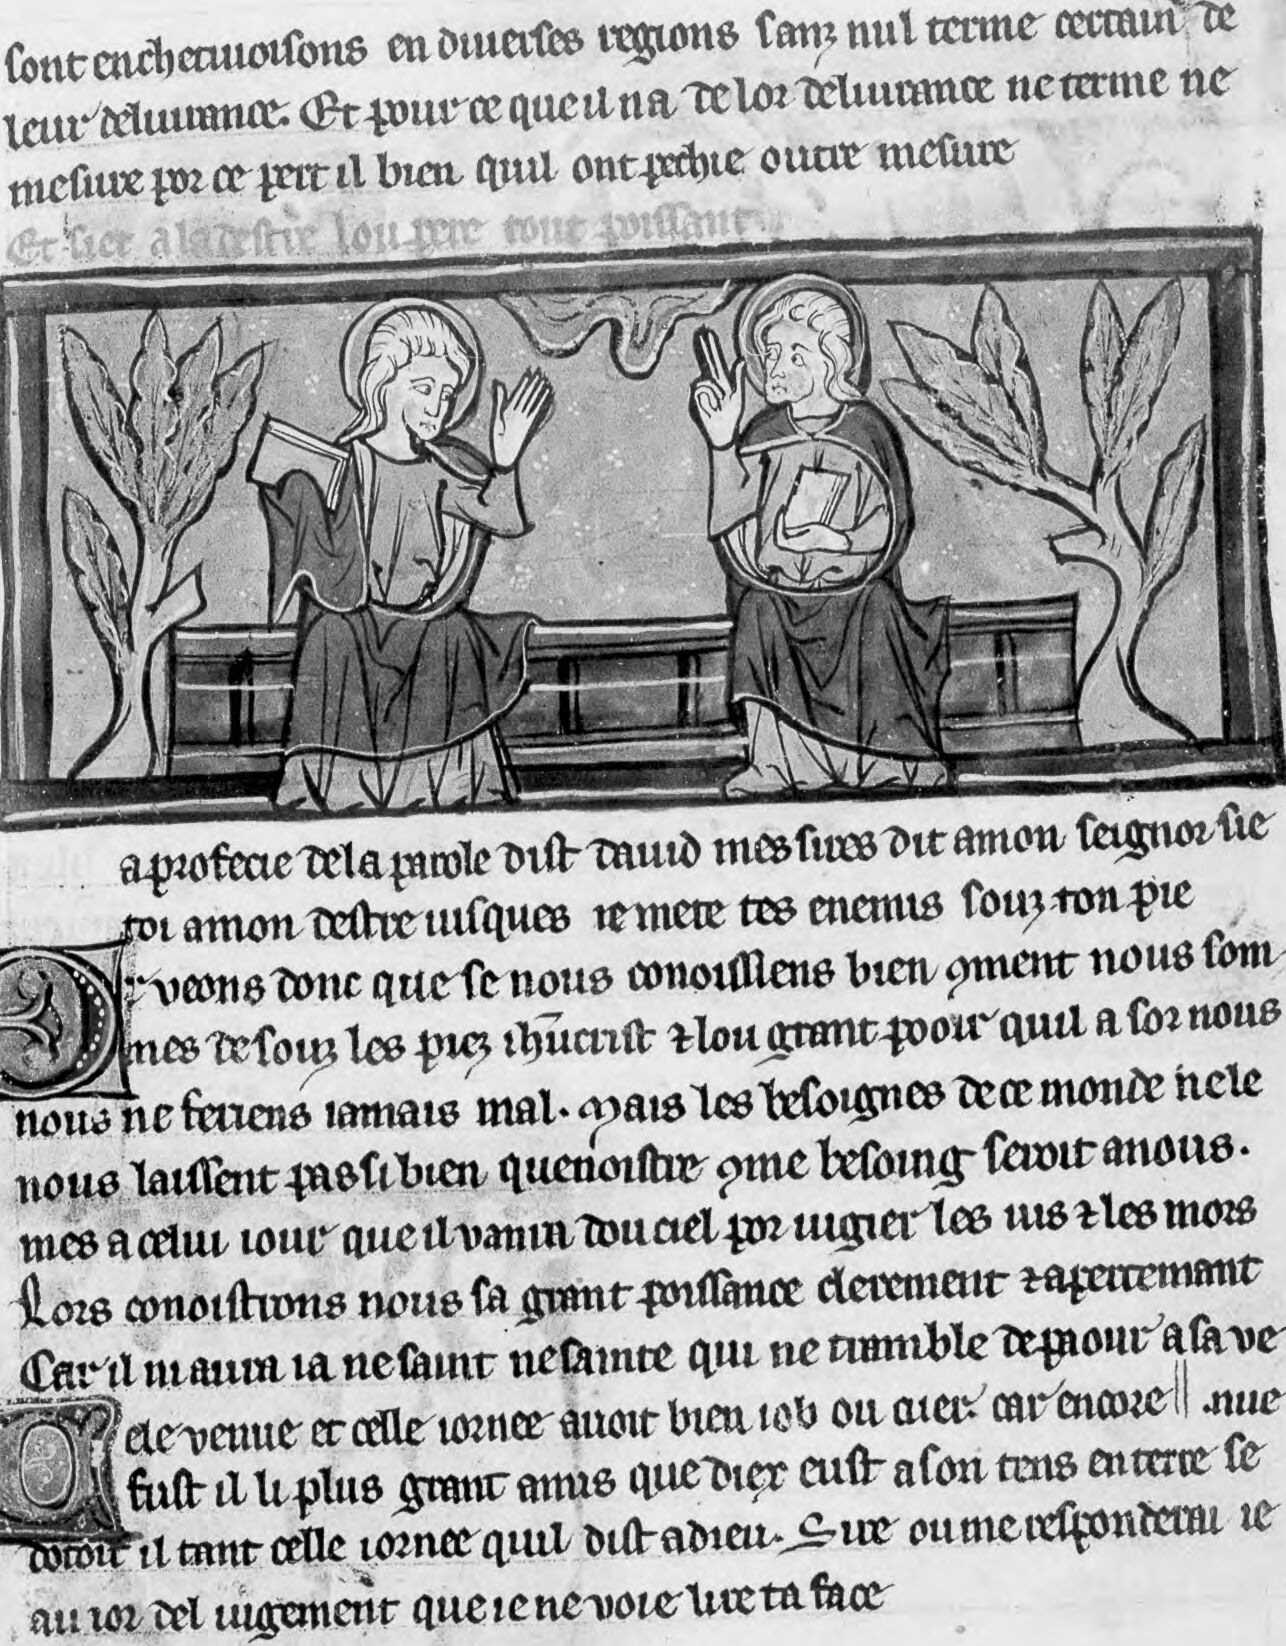 sont enchetiuoisons en diuerses regions sanz nul terme certain de
leur deliurance. Et pour ce que il na de lor deliurance ne terme ne
mesure por ce pert il bien quil ont pechie outre mesure
Et siet a la destre lou pere tout puissant
a profecie de la parole dist dauid mes sires dit a mon seignor sie
toi a mon destre iusques ie mete tes enemis souz ton pie
Or veons donc que se nous conoissiens bien ꝯment nous som
mes desouz les piez ihūcrist ⁊ lou grant pooir quil a sor nous
nous ne feriens iamais mal. Mais les besoignes de ce monde ne le
nous laissent pas si bien quenoistre ꝯme besoing seroit a nous.
mes a celui iour que il vanra dou ciel por iugier les uis ⁊ les mors
Lors conoistrons nous sa grant poissance clerement ⁊ apertemant
Car il ni aura ia ne saint ne sainte qui ne tramble de paour a sa ve
cele venue et celle iornee auoit bien iob ou cuer. car encore || .nue
fust il li plus grant amis que diex eust a son tens en terre se
dotoit il tant celle iornee quil dist a dieu. Sire ou me respondrerai ie
au ior del iugement que ie ne voie lire ta face